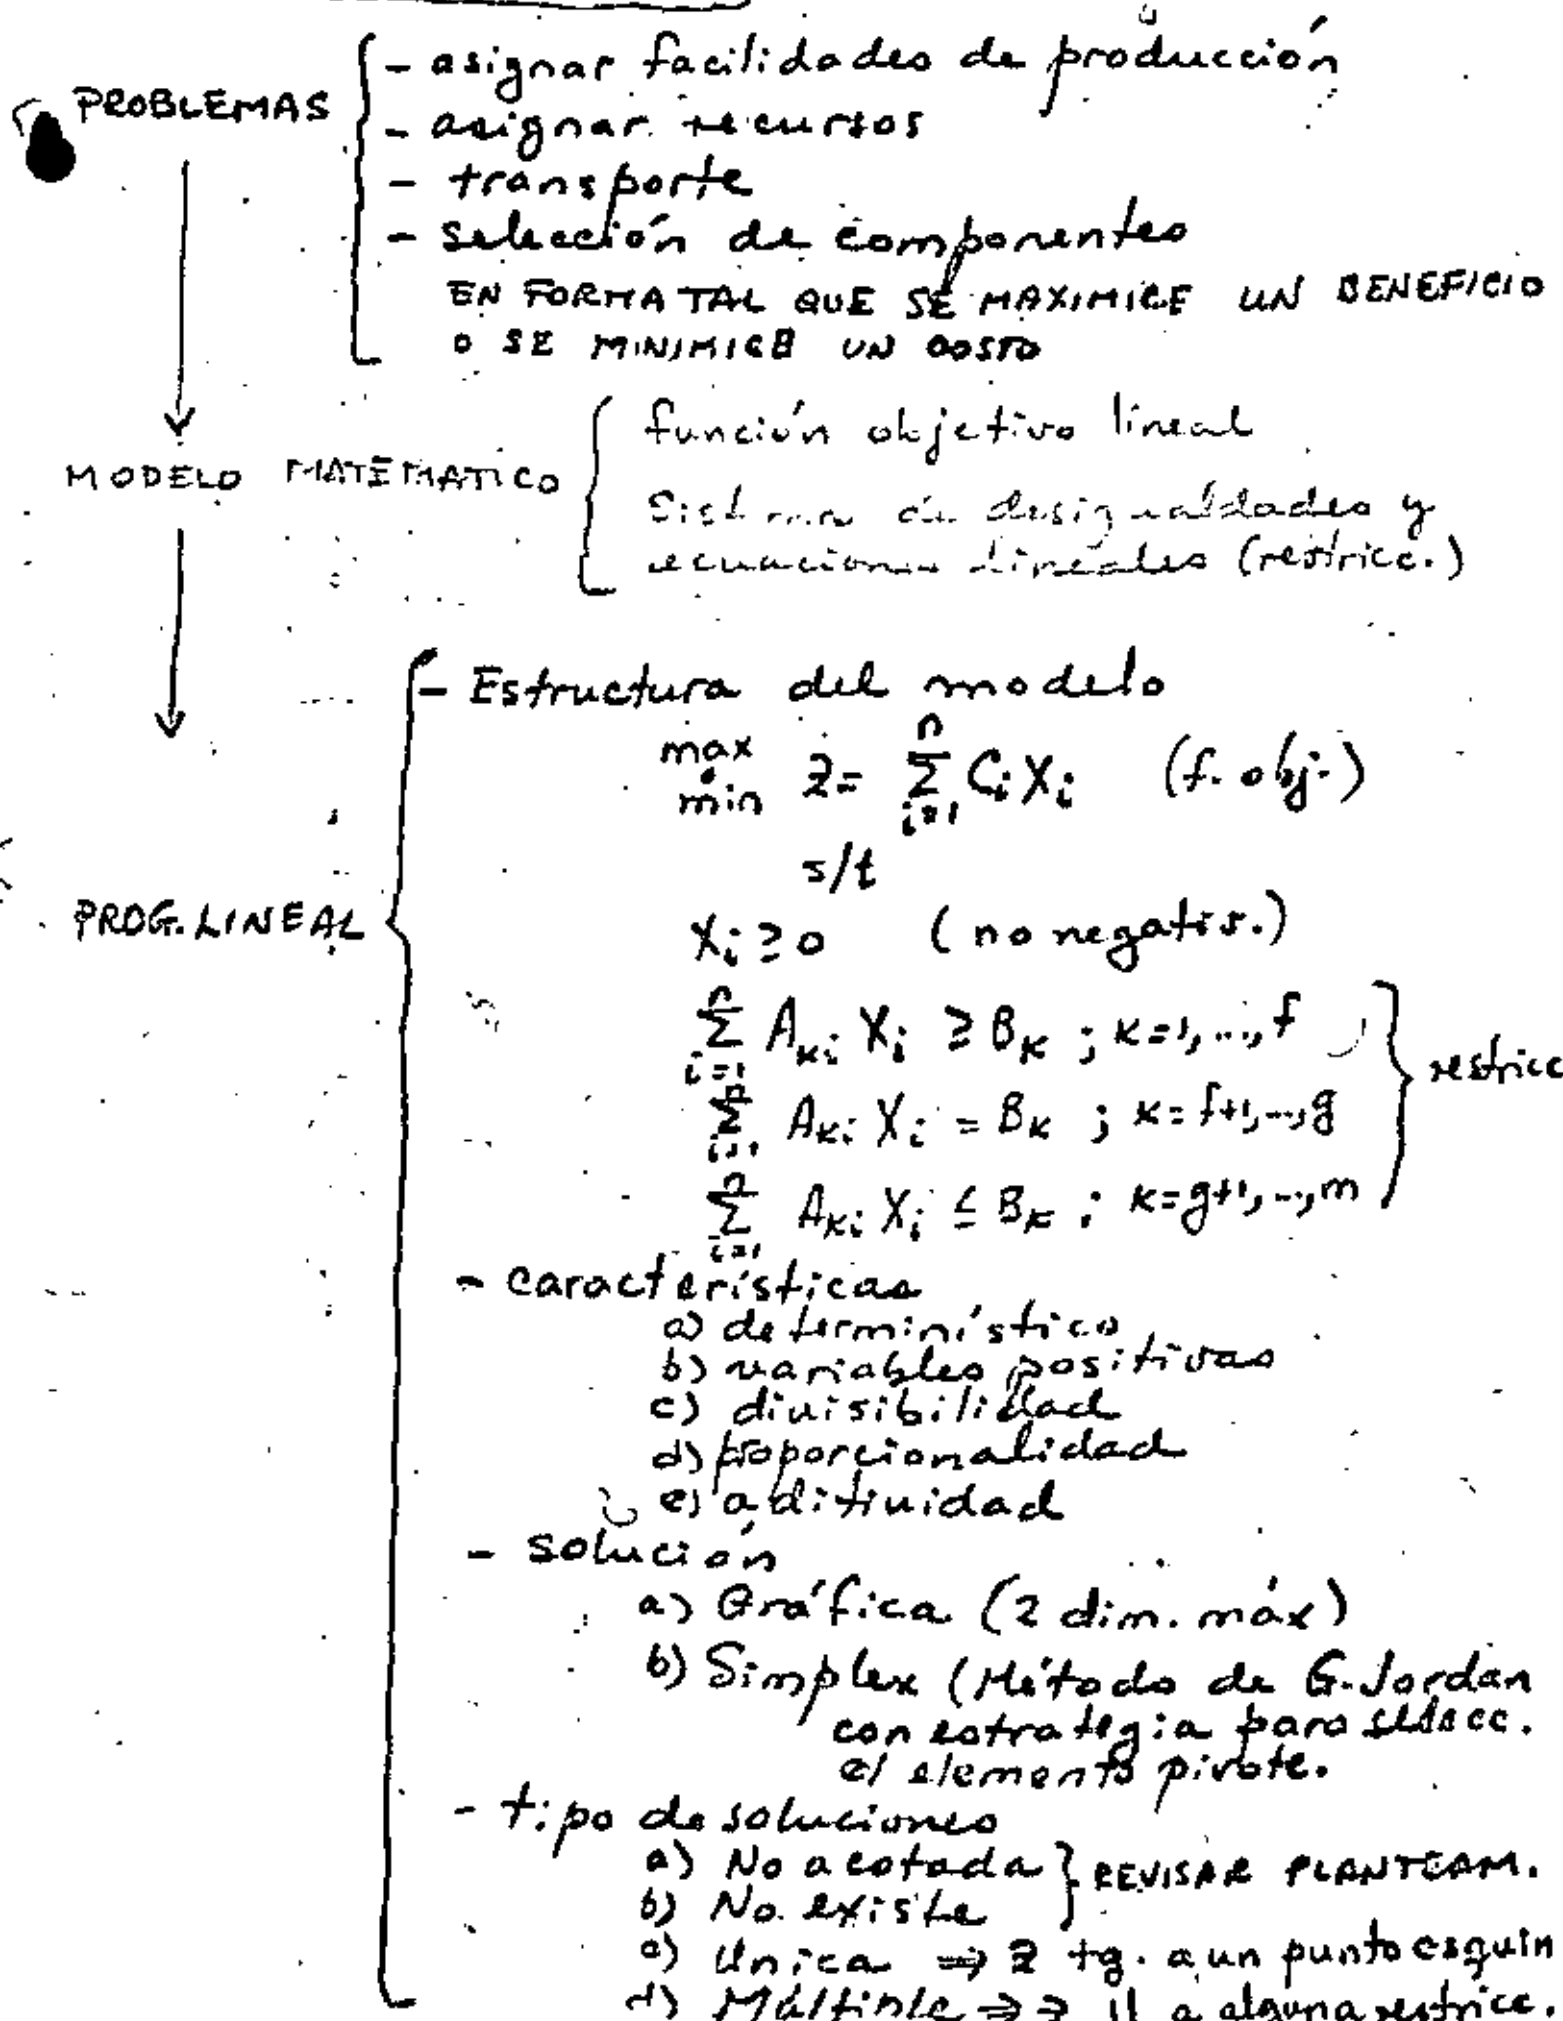 PROBLEMAS
- asignar facilidades de producción
- asignar recursos
- transporte
- selección de componentes
EN FORMA TAL QUE SE MAXIMICE UN BENEFICIO
O SE MINIMICE UN COSTO
MODELO MATEMATICO
función objetivo lineal
Sistema de desigualdades y
ecuaciones lineales (restricc.)
PROG. LINEAL
- Estructura del modelo
max
ó
min
z = \sum_{i=1}^{n} C_i X_i (f. obj.)
s/t
X_i ≥ 0 (no negativ.)
\sum_{i=1}^{n} A_{ki} X_i ≥ B_k ; k=1, ..., f
\sum_{i=1}^{n} A_{ki} X_i = B_k ; k=f+1, ..., g
\sum_{i=1}^{n} A_{ki} X_i ≤ B_k ; k=g+1, ..., m
restricc
- características
a) determinístico
b) variables positivas
c) divisibilidad
d) proporcionalidad
e) aditividad
- solución
a) Gráfica (2 dim. máx)
b) Simplex (Método de G. Jordan
con estrategia para selecc.
el elemento pivote.
- tipo de soluciones
a) No acotada
b) No existe
REVISAR PLANTEAM.
c) Unica ⇒ z tg. a un punto esquin
d) Múltiple ⇒ z || a alguna restricc.